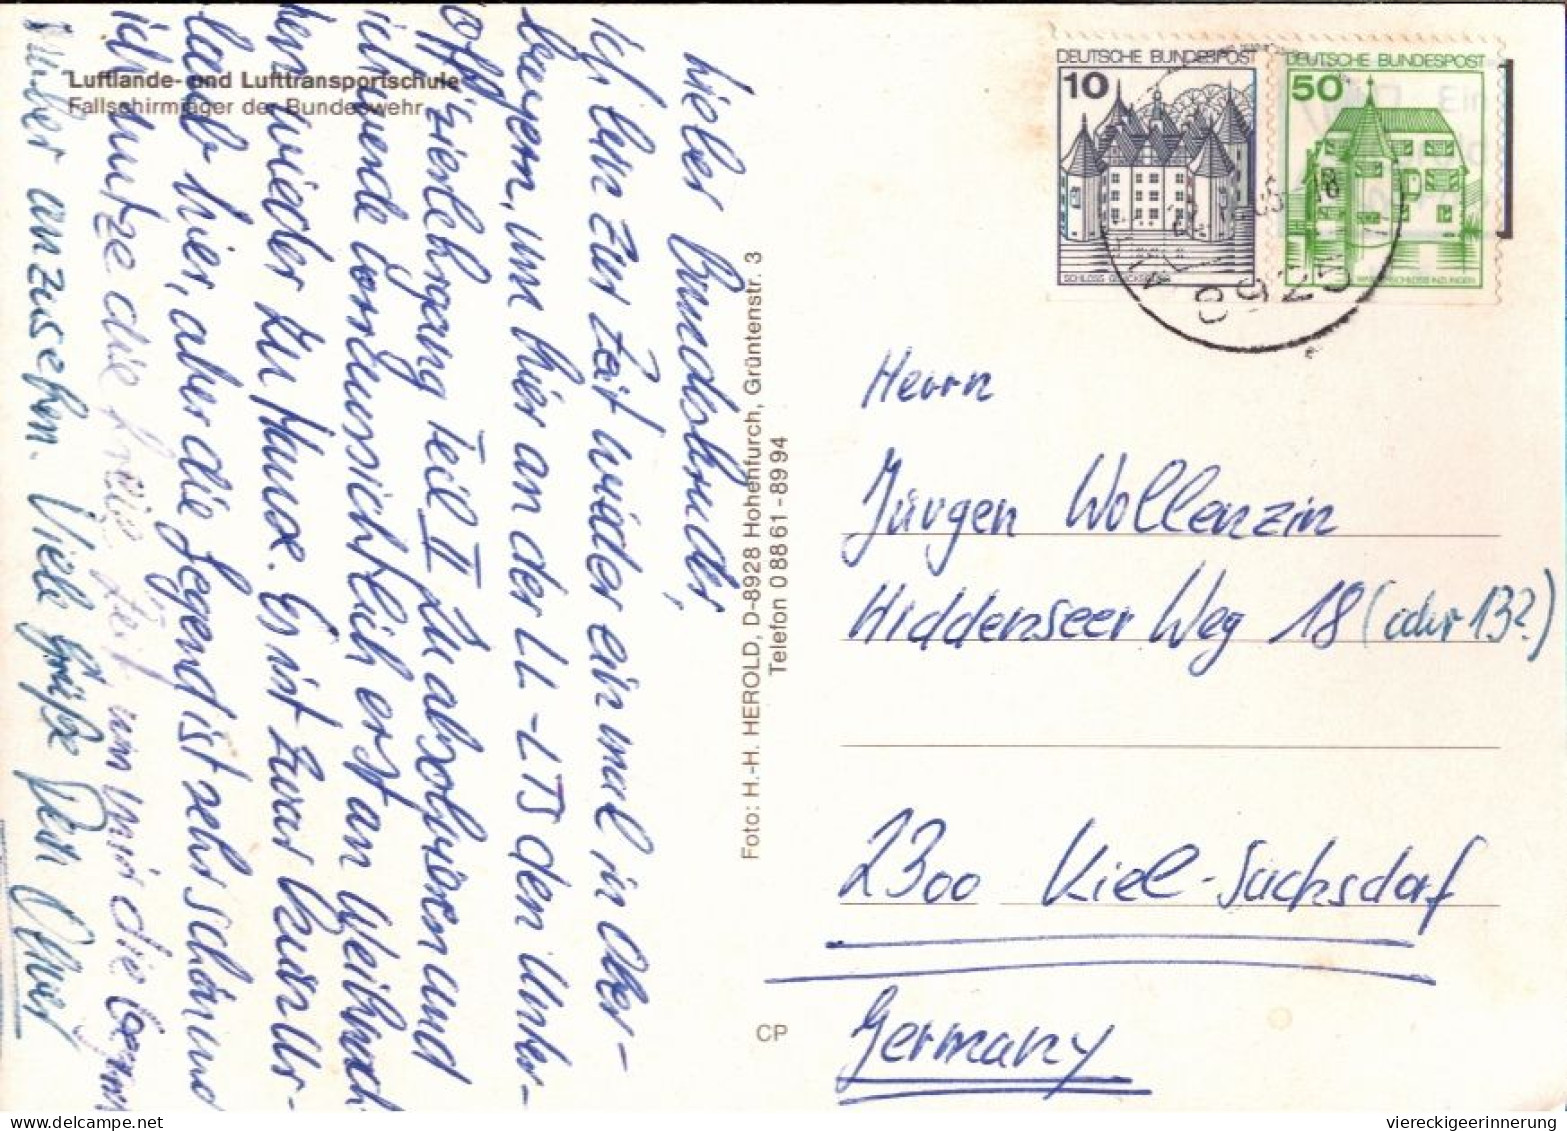 Luftlande- und Lufttransportschule
Fallschirmjäger der Bundeswehr
Lieber Bundesbruder,
ich bin zur Zeit wieder einmal in Ober-
bayern, um hier an der LL-LTS den Unter-
offizierlehrgang Teil II zu absolvieren und
ich werde voraussichtlich erst an Weihnach
ten wieder zu Hause. Es ist zwar kein Ur-
laub hier, aber die Gegend ist sehr schön und
ich nutze die freie Zeit um mir die
anzusehen. Viele Grüße Dein
Foto: H.-H. HEROLD, D-8928 Hohenfurch, Grüntenstr. 3
Telefon 0 88 61 - 89 94
CP
DEUTSCHE BUNDESPOST
10
SCHLOSS GLÜCKSBURG
DEUTSCHE BUNDESPOST
50
WASSERSCHLOSS INZLINGEN
18
8925
Herrn
Jürgen Wollenzin
Hiddenseer Weg 18 (oder 13?)
2300 Kiel-Suchsdorf
Germany
viereckigeerinnerung